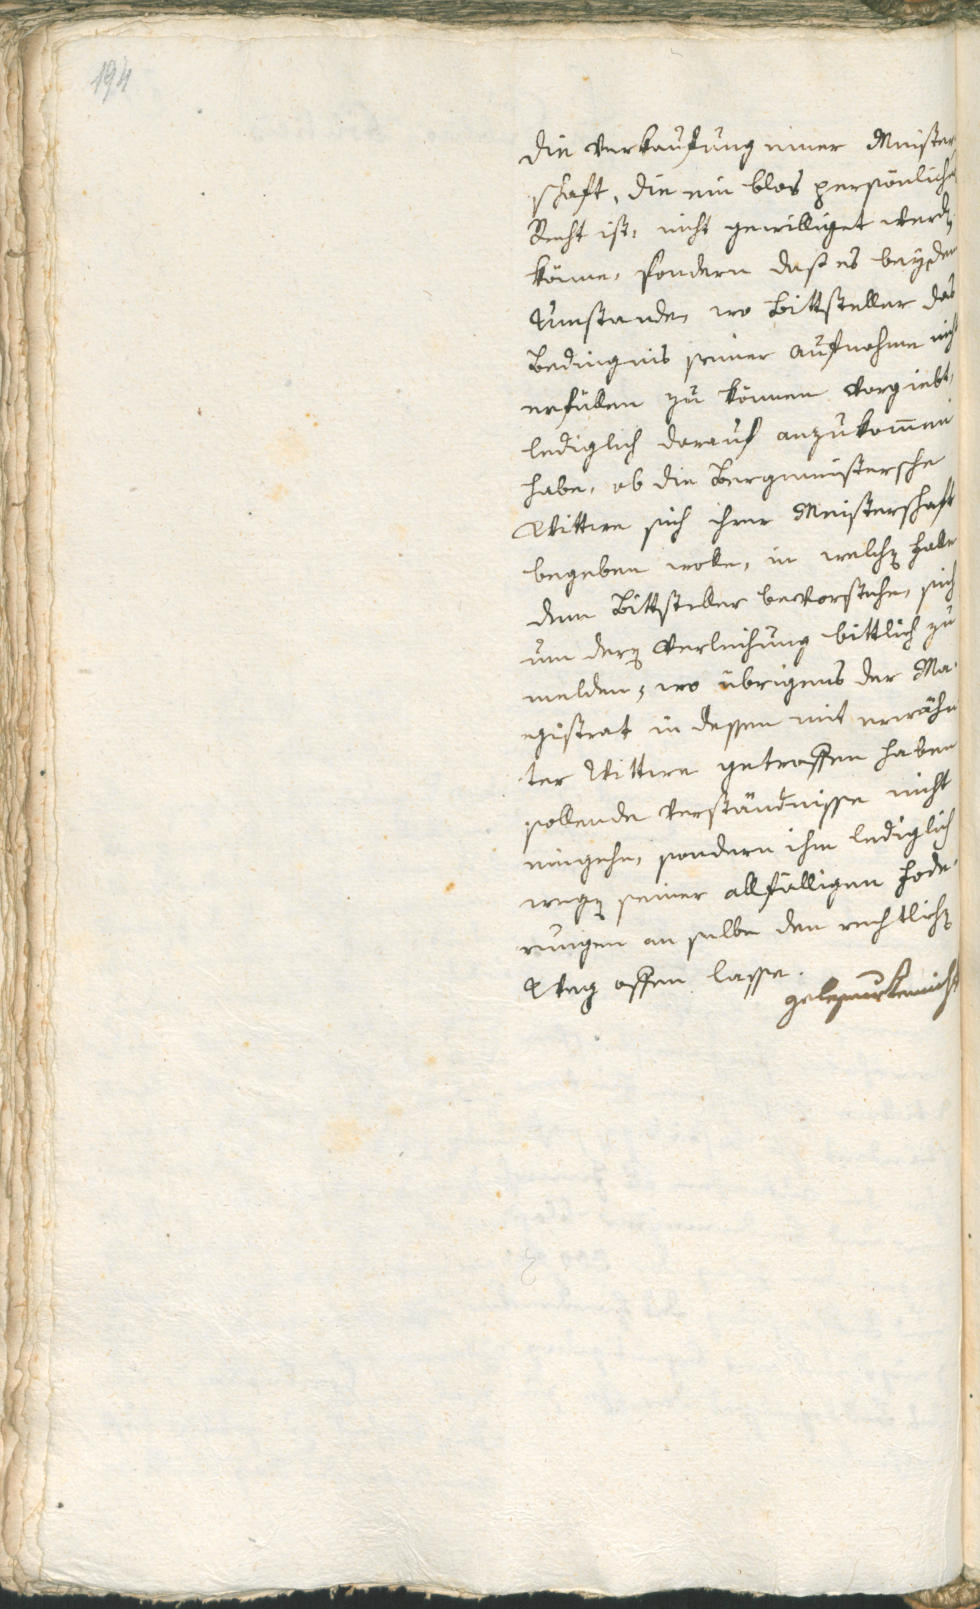 194
die Verkaufung einer Meister
schaft, die ein blos persönliches
Recht ist, nicht gewilliget werden
könne, sondern daß es bey dem
Umstande, wo Bittsteller das
Bedingnis seiner Aufnahme nicht
erfüllen zu können vorgiebt,
lediglich darauf anzukommen
habe, ob die Bergmeistersche
Wittwe sich ihrer Meisterschaft
begeben wolle, in welchen Falle
dem Bittsteller bevorstehe, sich
um deren Verleihung bittlich zu
melden, wo übrigens der Ma-
gistrat in dessen mit erwähn
ter Wittwe getroffen haben
sollende Verständnisse nicht
eingehe, sondern ihm lediglich
wegen seiner allfälligen Fode-
rungen an selbe den rechtlichen
Weg offen lasse.